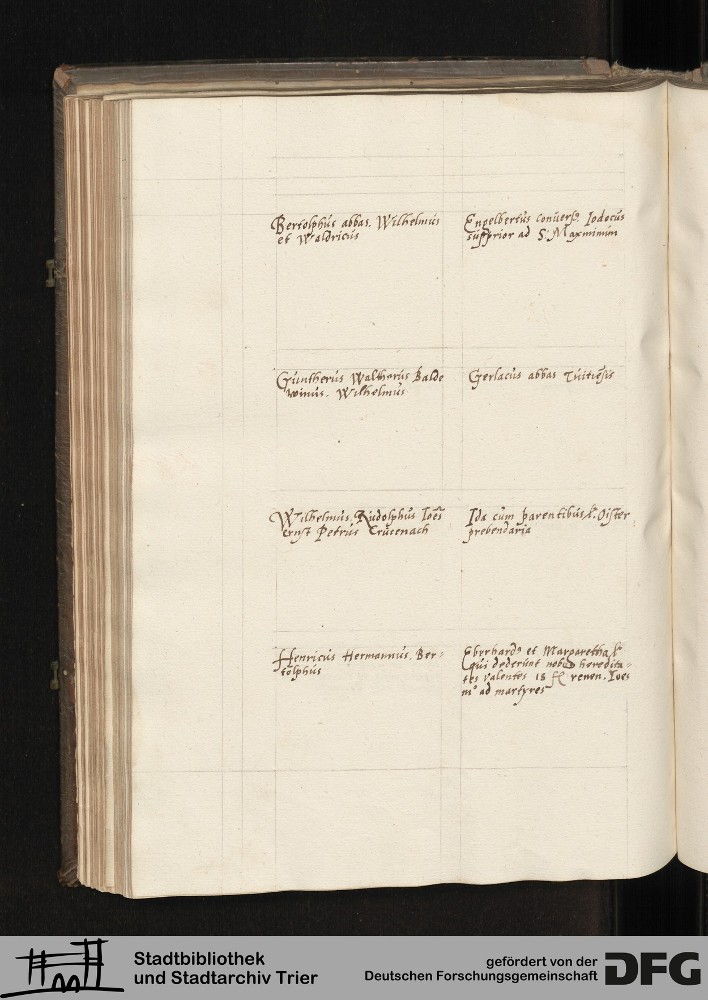 Bertolphus abbas. Wilhelmus
et Waldricus
Engelbertus conuers9. Iodocus
supprior ad S. Maxminum
Guntherus Waltherus Balde
winus. Wilhelmus
Gerlacus abbas Tuitiēsis
Wilhelmus. Rudolphus Ioēs
ernst Petrus Crucenach
Ida cum parentibus
prebendaria
Henricus Hermannus. Ber=
tolphus
Eberhard9 et Margaretha
qui dederūt nobis heredita=
tes valentes 18 fl renen. Ioes
mo ad martyres
Stadtbibliothek
und Stadtarchiv Trier
gefördert von der
Deutschen Forschungsgemeinschaft
DFG